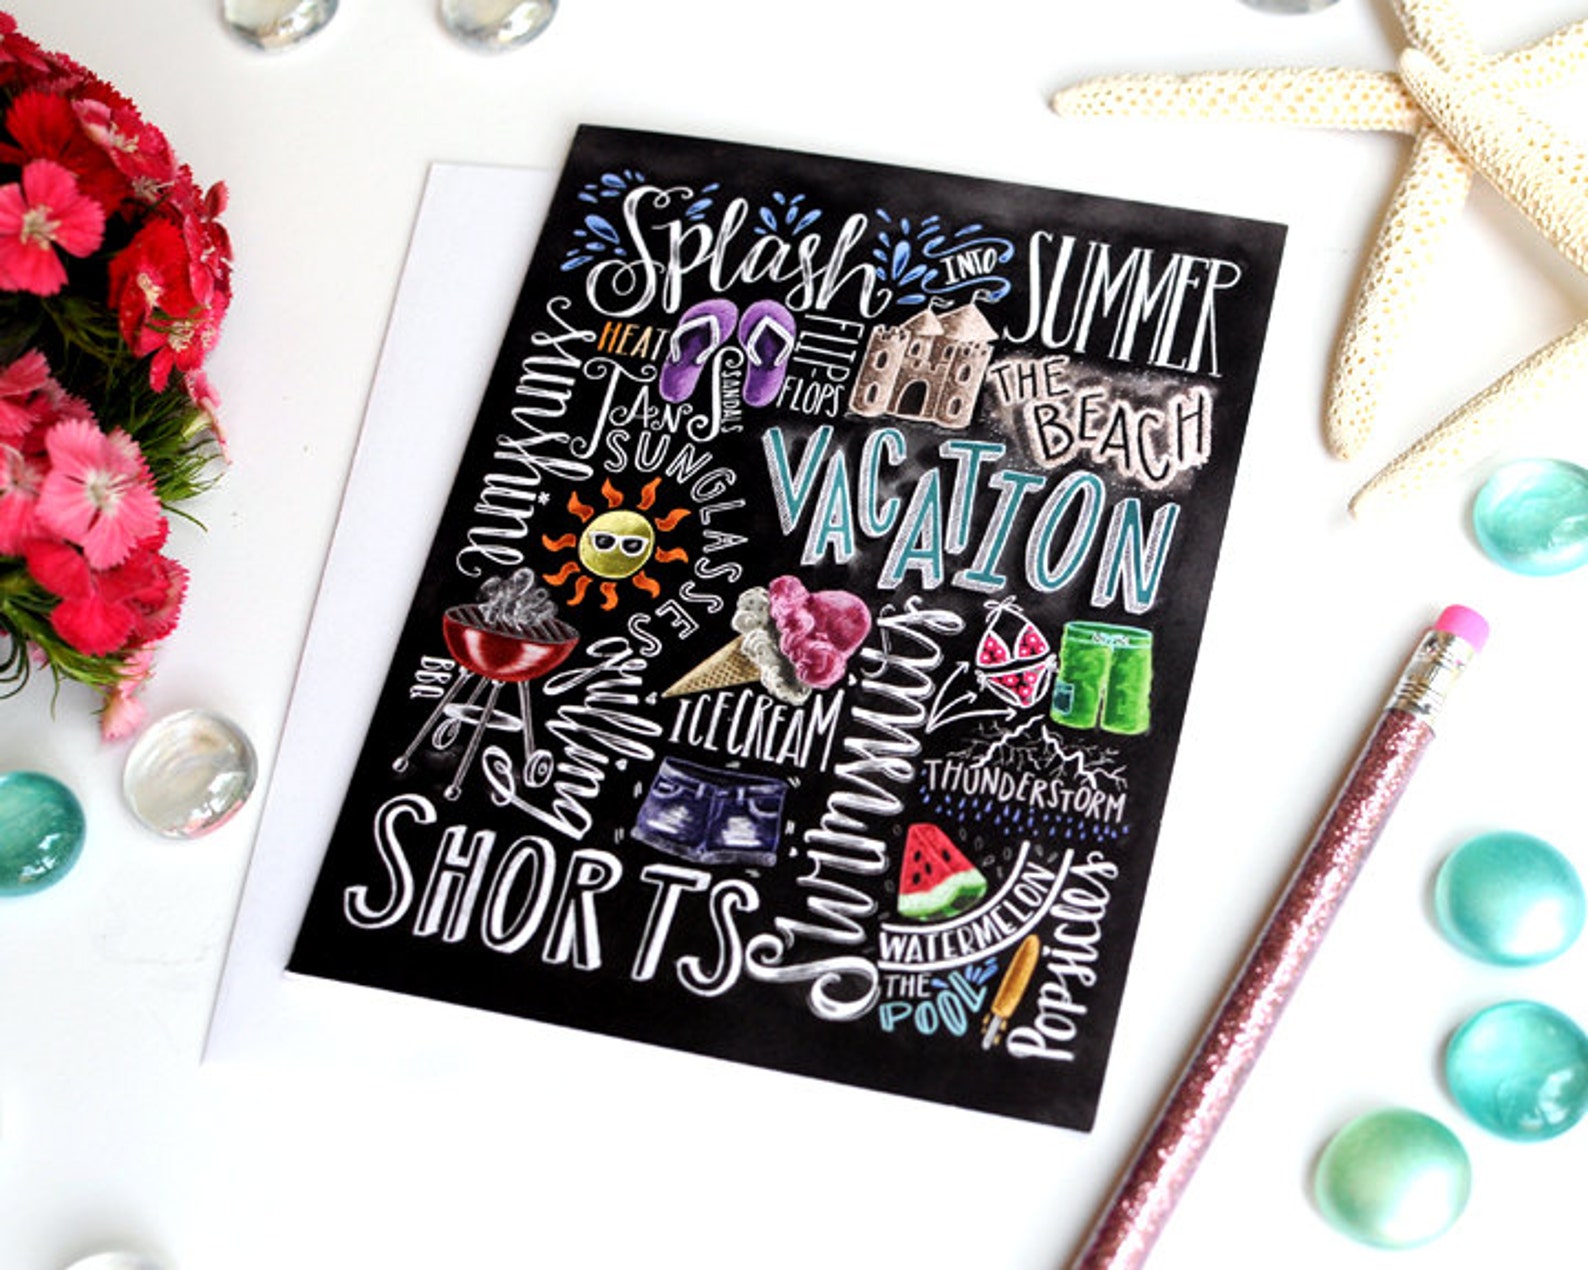 Splash INTO SUMMER
Sunshine
HEAT
TANS
SANDALS
FLIP-
FLOPS
THE
BEACH
SUNGLASSES
VACATION
BBQ
Grilling
ICE-CREAM
Swimming
THUNDERSTORM
SHORTS
WATERMELON
THE
POOL
Popsicles